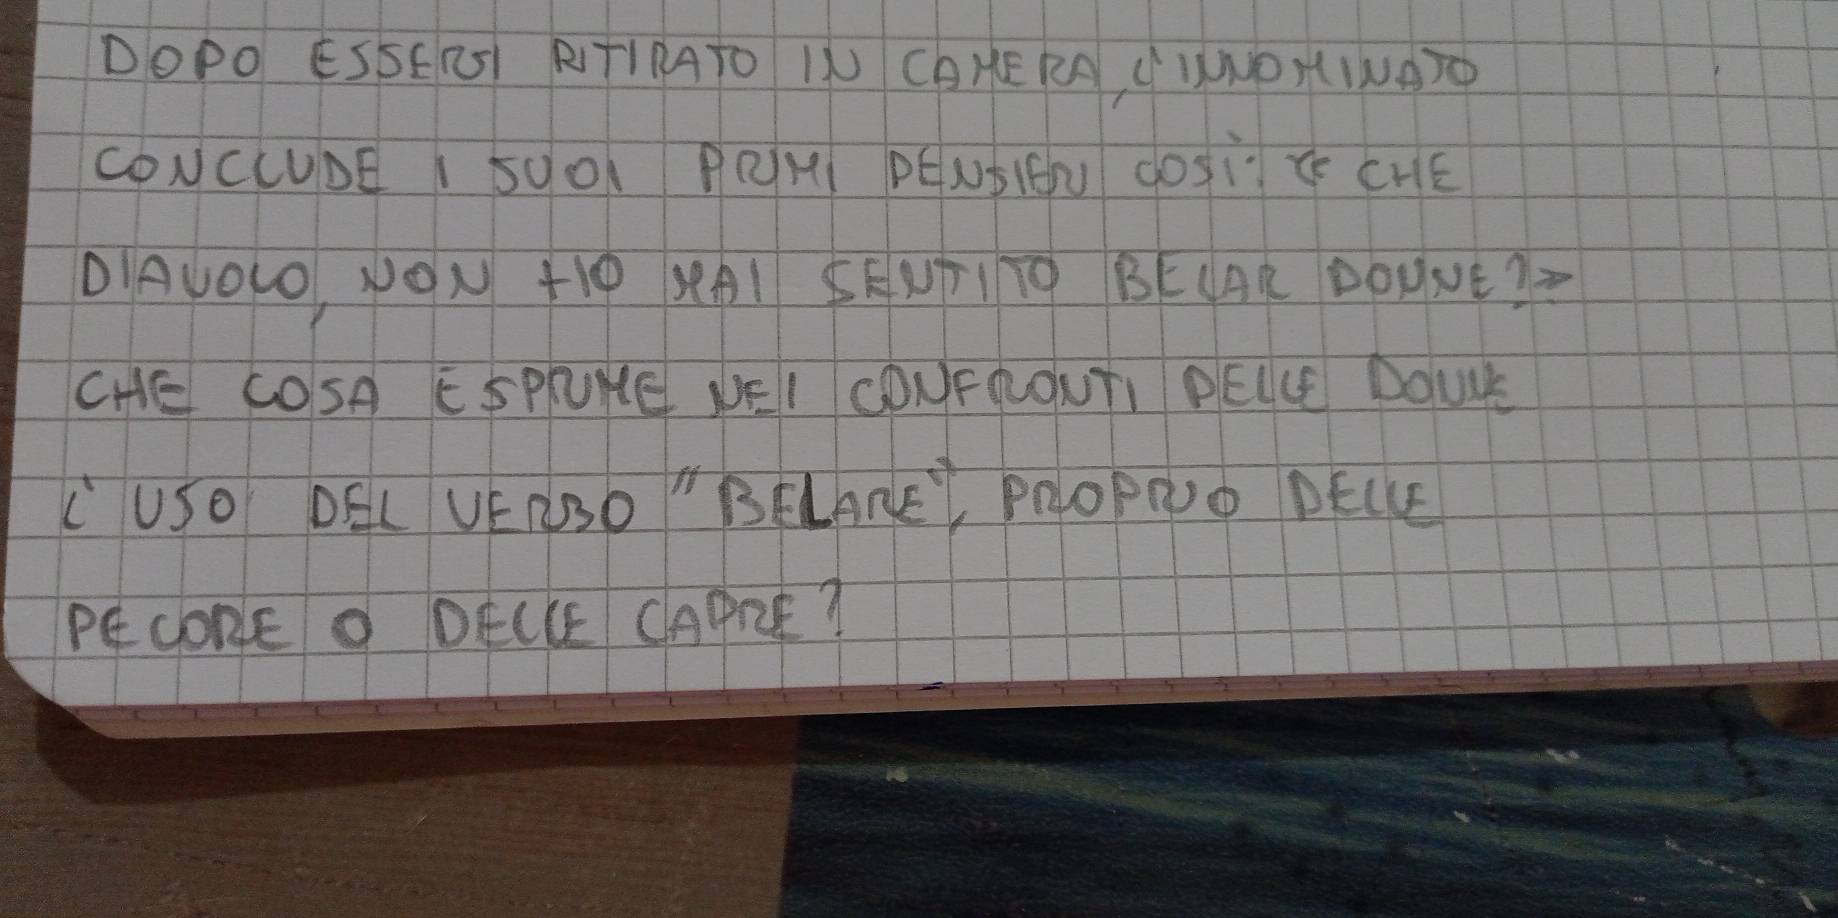 DOPO ESSERSI RITIRATO IN CAMERA, L'INNOMINATO
CONCLUDE I SUOI PRIMI PENSIERI COSÌ: « CHE
DIAVOLO, NON HO MAI SENTITO BELAR DONNE? »
CHE COSA ESPRIME NEI CONFRONTI DELLE DONNE
L'USO DEL VERBO "BELARE", PROPRIO DELLE
PECORE O DELLE CAPRE?